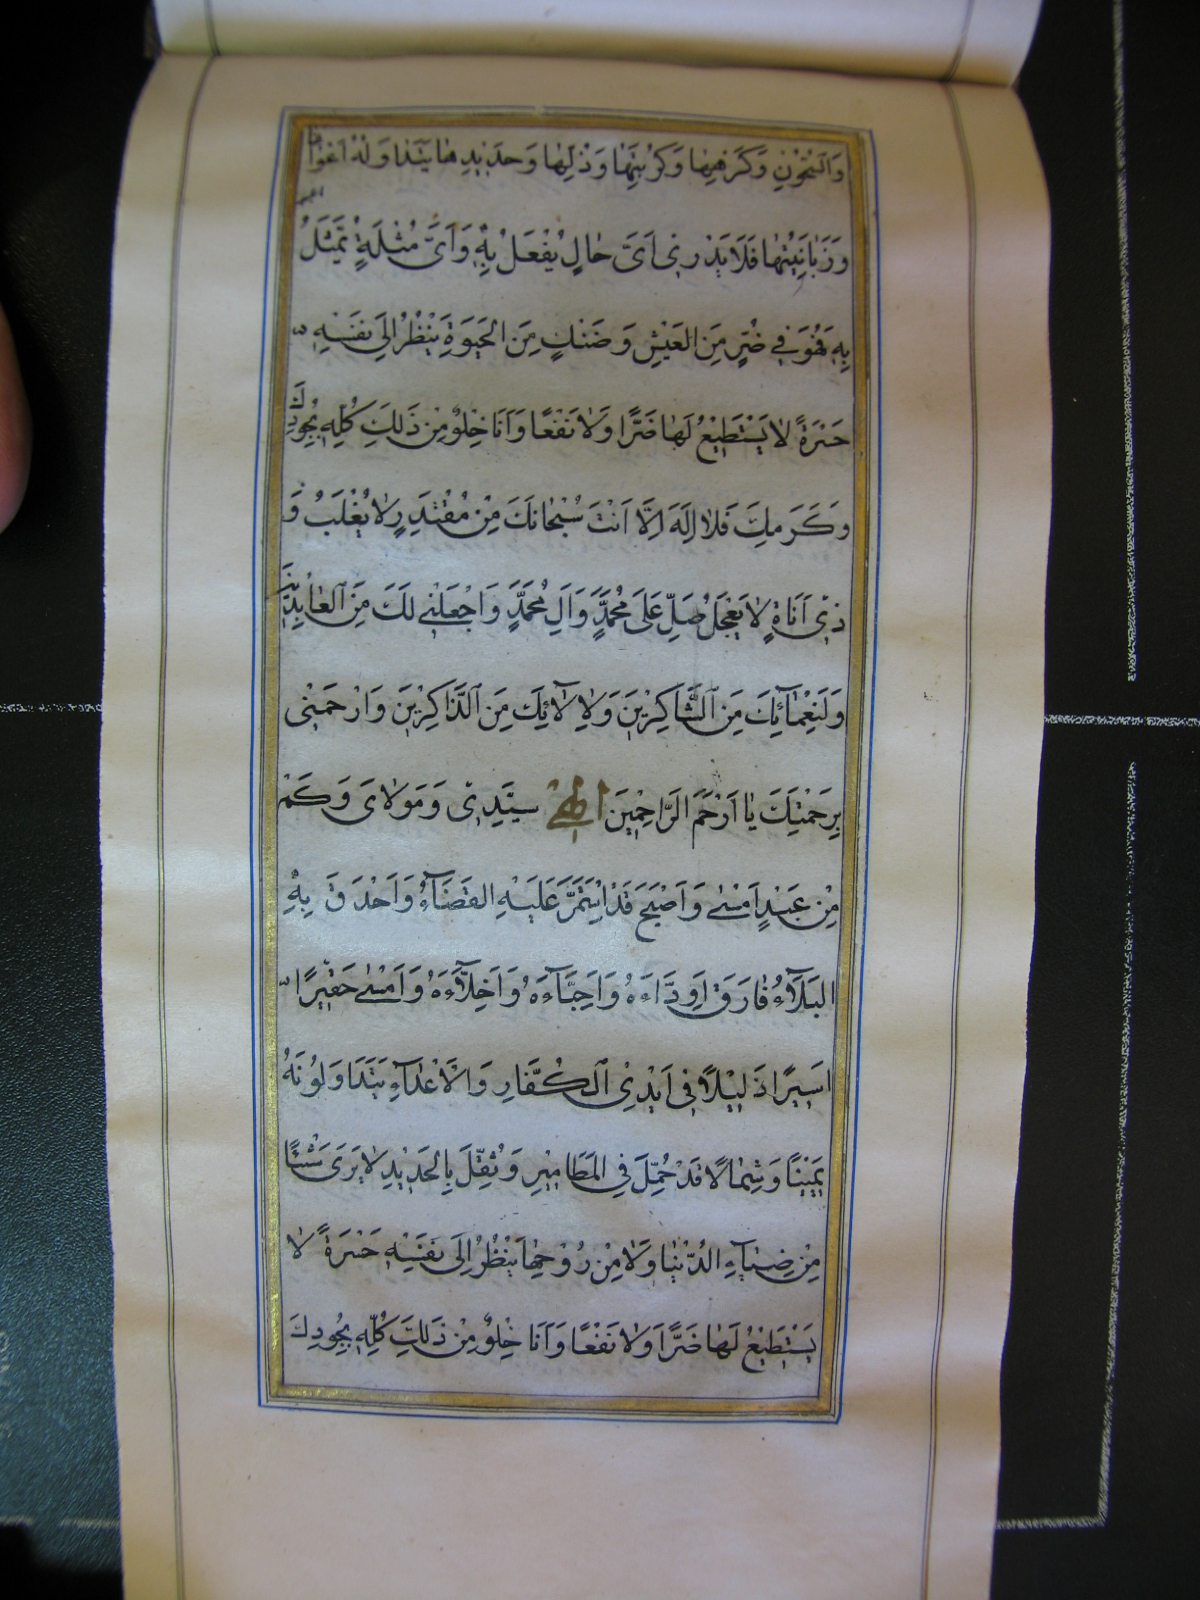 وَالسُّجُونِ وَكَرْبِهَا وَكُرْبَتِهَا وَذُلِّهَا وَحَدِيدِهَا يَتَدَاوَلُهُ اَعْوَانُهَا
وَزَبَانِيَتُهَا فَلَا يَدْرِي اَيَّ حَالٍ يُفْعَلُ بِهِ وَاَيَّ مُثْلَةٍ يُمَثَّلُ
بِهِ فَهُوَ فِي ضُرٍّ مِنَ الْعَيْشِ وَضَنْكٍ مِنَ الْحَيٰوةِ يَنْظُرُ اِلَى نَفْسِهِ
حَسْرَةً لَا يَسْتَطِيعُ لَهَا ضَرًّا وَلَا نَفْعًا وَاَنَا خِلْوٌ مِنْ ذَلِكَ كُلِّهِ بِجُودِكَ
وَكَرَمِكَ فَلَا اِلَهَ اِلَّا اَنْتَ سُبْحَانَكَ مِنْ مُقْتَدِرٍ لَا يُغْلَبُ وَ
ذِي اَنَاةٍ لَا يَعْجَلُ صَلِّ عَلَى مُحَمَّدٍ وَآلِ مُحَمَّدٍ وَاجْعَلْنِي لَكَ مِنَ الْعَابِدِينَ
وَلِنَعْمَائِكَ مِنَ الشَّاكِرِينَ وَلِآلَائِكَ مِنَ الذَّاكِرِينَ وَارْحَمْنِي
بِرَحْمَتِكَ يَا اَرْحَمَ الرَّاحِمِينَ اِلٰهِي سَيِّدِي وَمَوْلَايَ وَكَمْ
مِنْ عَبْدٍ اَمْسَى وَاَصْبَحَ قَدِ اسْتَمَرَّ عَلَيْهِ الْقَضَاءُ وَاَحْدَقَ بِهِ
الْبَلَاءُ فَارَقَ اَوِدَّاءَهُ وَاَحِبَّاءَهُ وَاَخِلَّاءَهُ وَاَمْسَى حَقِيرًا
اَسِيرًا ذَلِيلًا فِي اَيْدِي الْكُفَّارِ وَالْاَعْدَاءِ يَتَدَاوَلُونَهُ
يَمِينًا وَشِمَالًا قَدْ حُمِّلَ فِي الْمَطَامِيرِ وَثُقِّلَ بِالْحَدِيدِ لَا يَرَى شَيْئًا
مِنْ ضِيَاءِ الدُّنْيَا وَلَا مِنْ رُوحِهَا يَنْظُرُ اِلَى نَفْسِهِ حَسْرَةً لَا
يَسْتَطِيعُ لَهَا ضَرًّا وَلَا نَفْعًا وَاَنَا خِلْوٌ مِنْ ذَلِكَ كُلِّهِ بِجُودِكَ